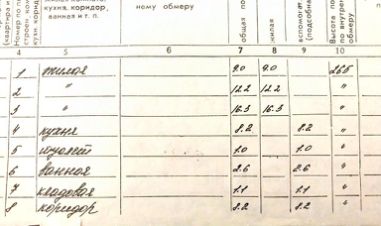 кухня, коридор,
ванная и т. п.
ному обмеру
общая
жилая
вспомог
(подсобна
Высота по
по внутрен
обмеру
4 5 6 7 8 9 10
1 жилая 9.0 9.0 265
2 " 12.2 12.2 "
3 " 16.3 16.3 "
4 кухня 8.2 8.2 "
5 туалет 1.0 1.0 "
6 ванная 2.6 2.6 "
7 кладовая 1.1 1.1 "
8 коридор 8.2 8.2 "